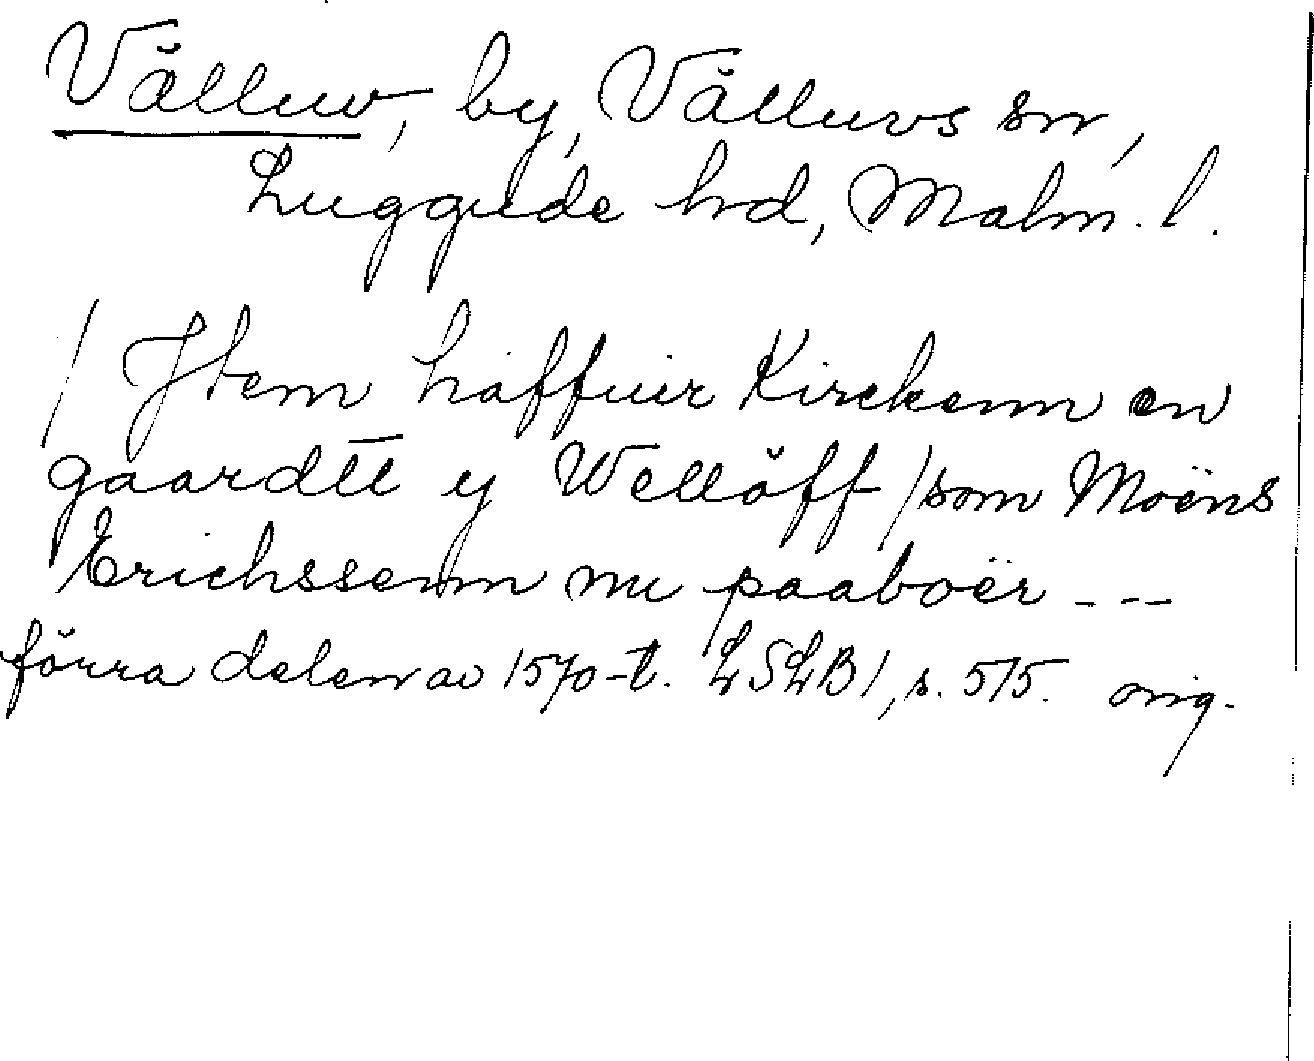 Välluv, by, Välluvs sn,
Luggude hrd, Malm. l.
/ Jtem haffuer Kirckenn en
gaardtt y Wellöff / som Moëns
Erichssenn nu paaboër ---
förra delen av 1570-t. LSLB 1, s. 575. orig.